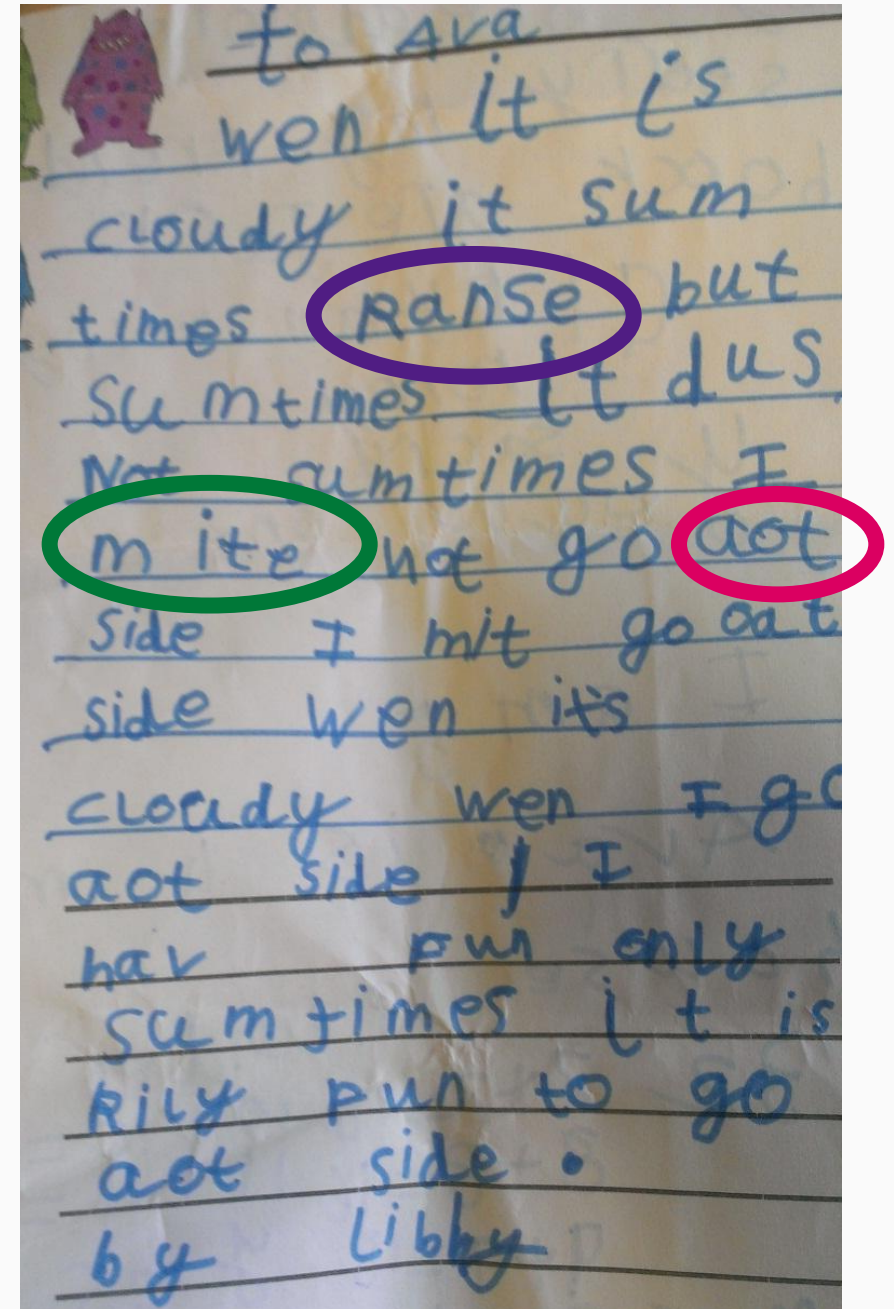 to Ava
wen it is
cloudy it sum
times ranse but
sumtimes it dus
Not sumtimes I
mite not go aot
side I mit go oat
side wen it's
cloudy wen I go
aot side I
hav fun only
sumtimes it is
Rily fun to go
aot side.
by Libby